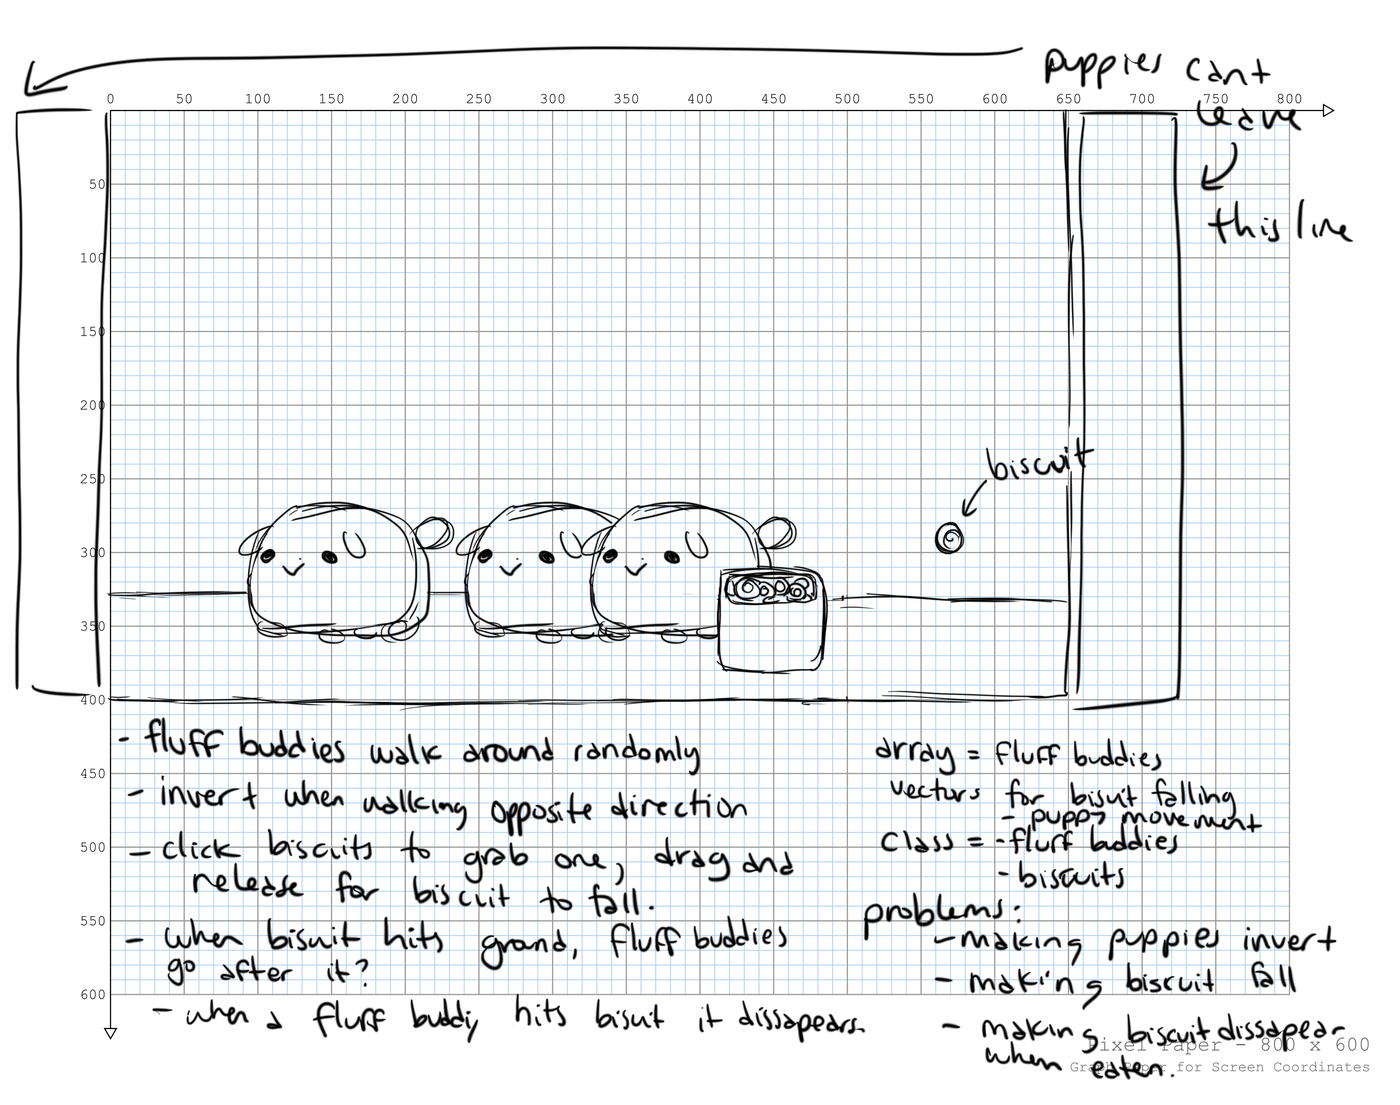 puppies cant
leave
this line
0 50 100 150 200 250 300 350 400 450 500 550 600 650 700 750 800
50
100
150
200
250
300
350
400
450
500
550
600
biscuit
- fluff buddies walk around randomly
- invert when walking opposite direction
- click biscuits to grab one, drag and
release for biscuit to fall.
- when bisuit hits ground, fluff buddies
go after it?
- when a fluff buddy hits bisuit it dissapears.
array = fluff buddies
vectors for bisuit falling
- puppy movement
class = - fluff buddies
- biscuits
problems:
- making puppies invert
- making biscuit fall
- making biscuit dissapear
when eaten.
Pixel Paper - 800 x 600
Graph Paper for Screen Coordinates